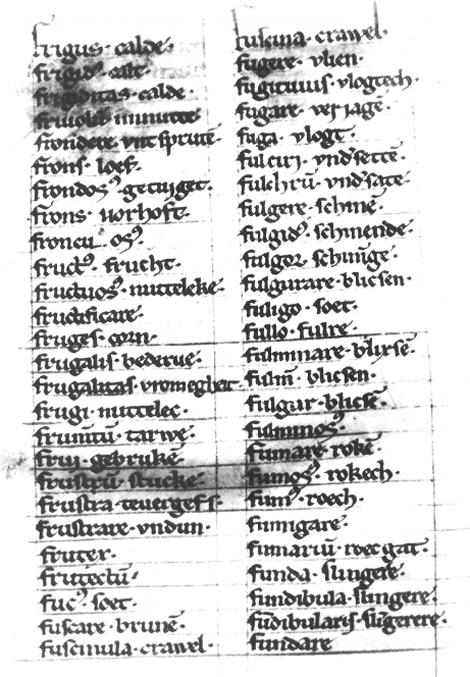 frigus · calde ·
frigid⁹ · calt ·
frigiditas · calde ·
friuol⁹ · minutte
frondere · vntsprutē ·
frons · loef ·
frondos⁹ · getuyget ·
frons · uorhoft ·
froncu os⁹ ·
fruct⁹ · frucht ·
fructuos⁹ · nutteleke ·
fructificare ·
fruges · corn ·
frugalis · bederue ·
frugalitas · vromegheit
frugi · nuttelec ·
frumtū · tarwe ·
frui · gebrukē
frustrū · stucke ·
frustra · teuergefs ·
frustrare · vndun ·
fruter ·
frutectū ·
fuc⁹ · soet ·
fuscare · brunē ·
fuscinula · crawel ·
fuscina · crawel ·
fugere · vlien ·
fugitiuus · vlogtech ·
fugare · veriagē ·
fuga · vlogt ·
fulciri · vnd'settē ·
fulchrū · vnd'sate ·
fulgere · schinē ·
fulgid⁹ · schinende ·
fulgor · schininge ·
fulgurare · blicsen ·
fuligo · soet ·
fullo · fulre ·
fulminare · blixsē ·
fulm̄ · blicsen ·
fulgur · blicsē ·
fulminos⁹ ·
fumare · rokē ·
fumos⁹ · rokech ·
fum⁹ · roech ·
fumigare ·
fumariū · roecgat ·
funda · slingere ·
fundibula · slingere ·
fūdibularis · slīgerere ·
fundare